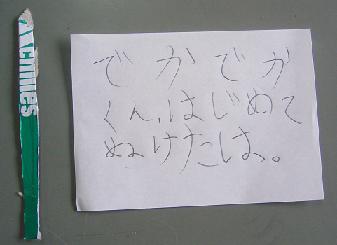 でかでが
くん、はじめて
ぬけたは。